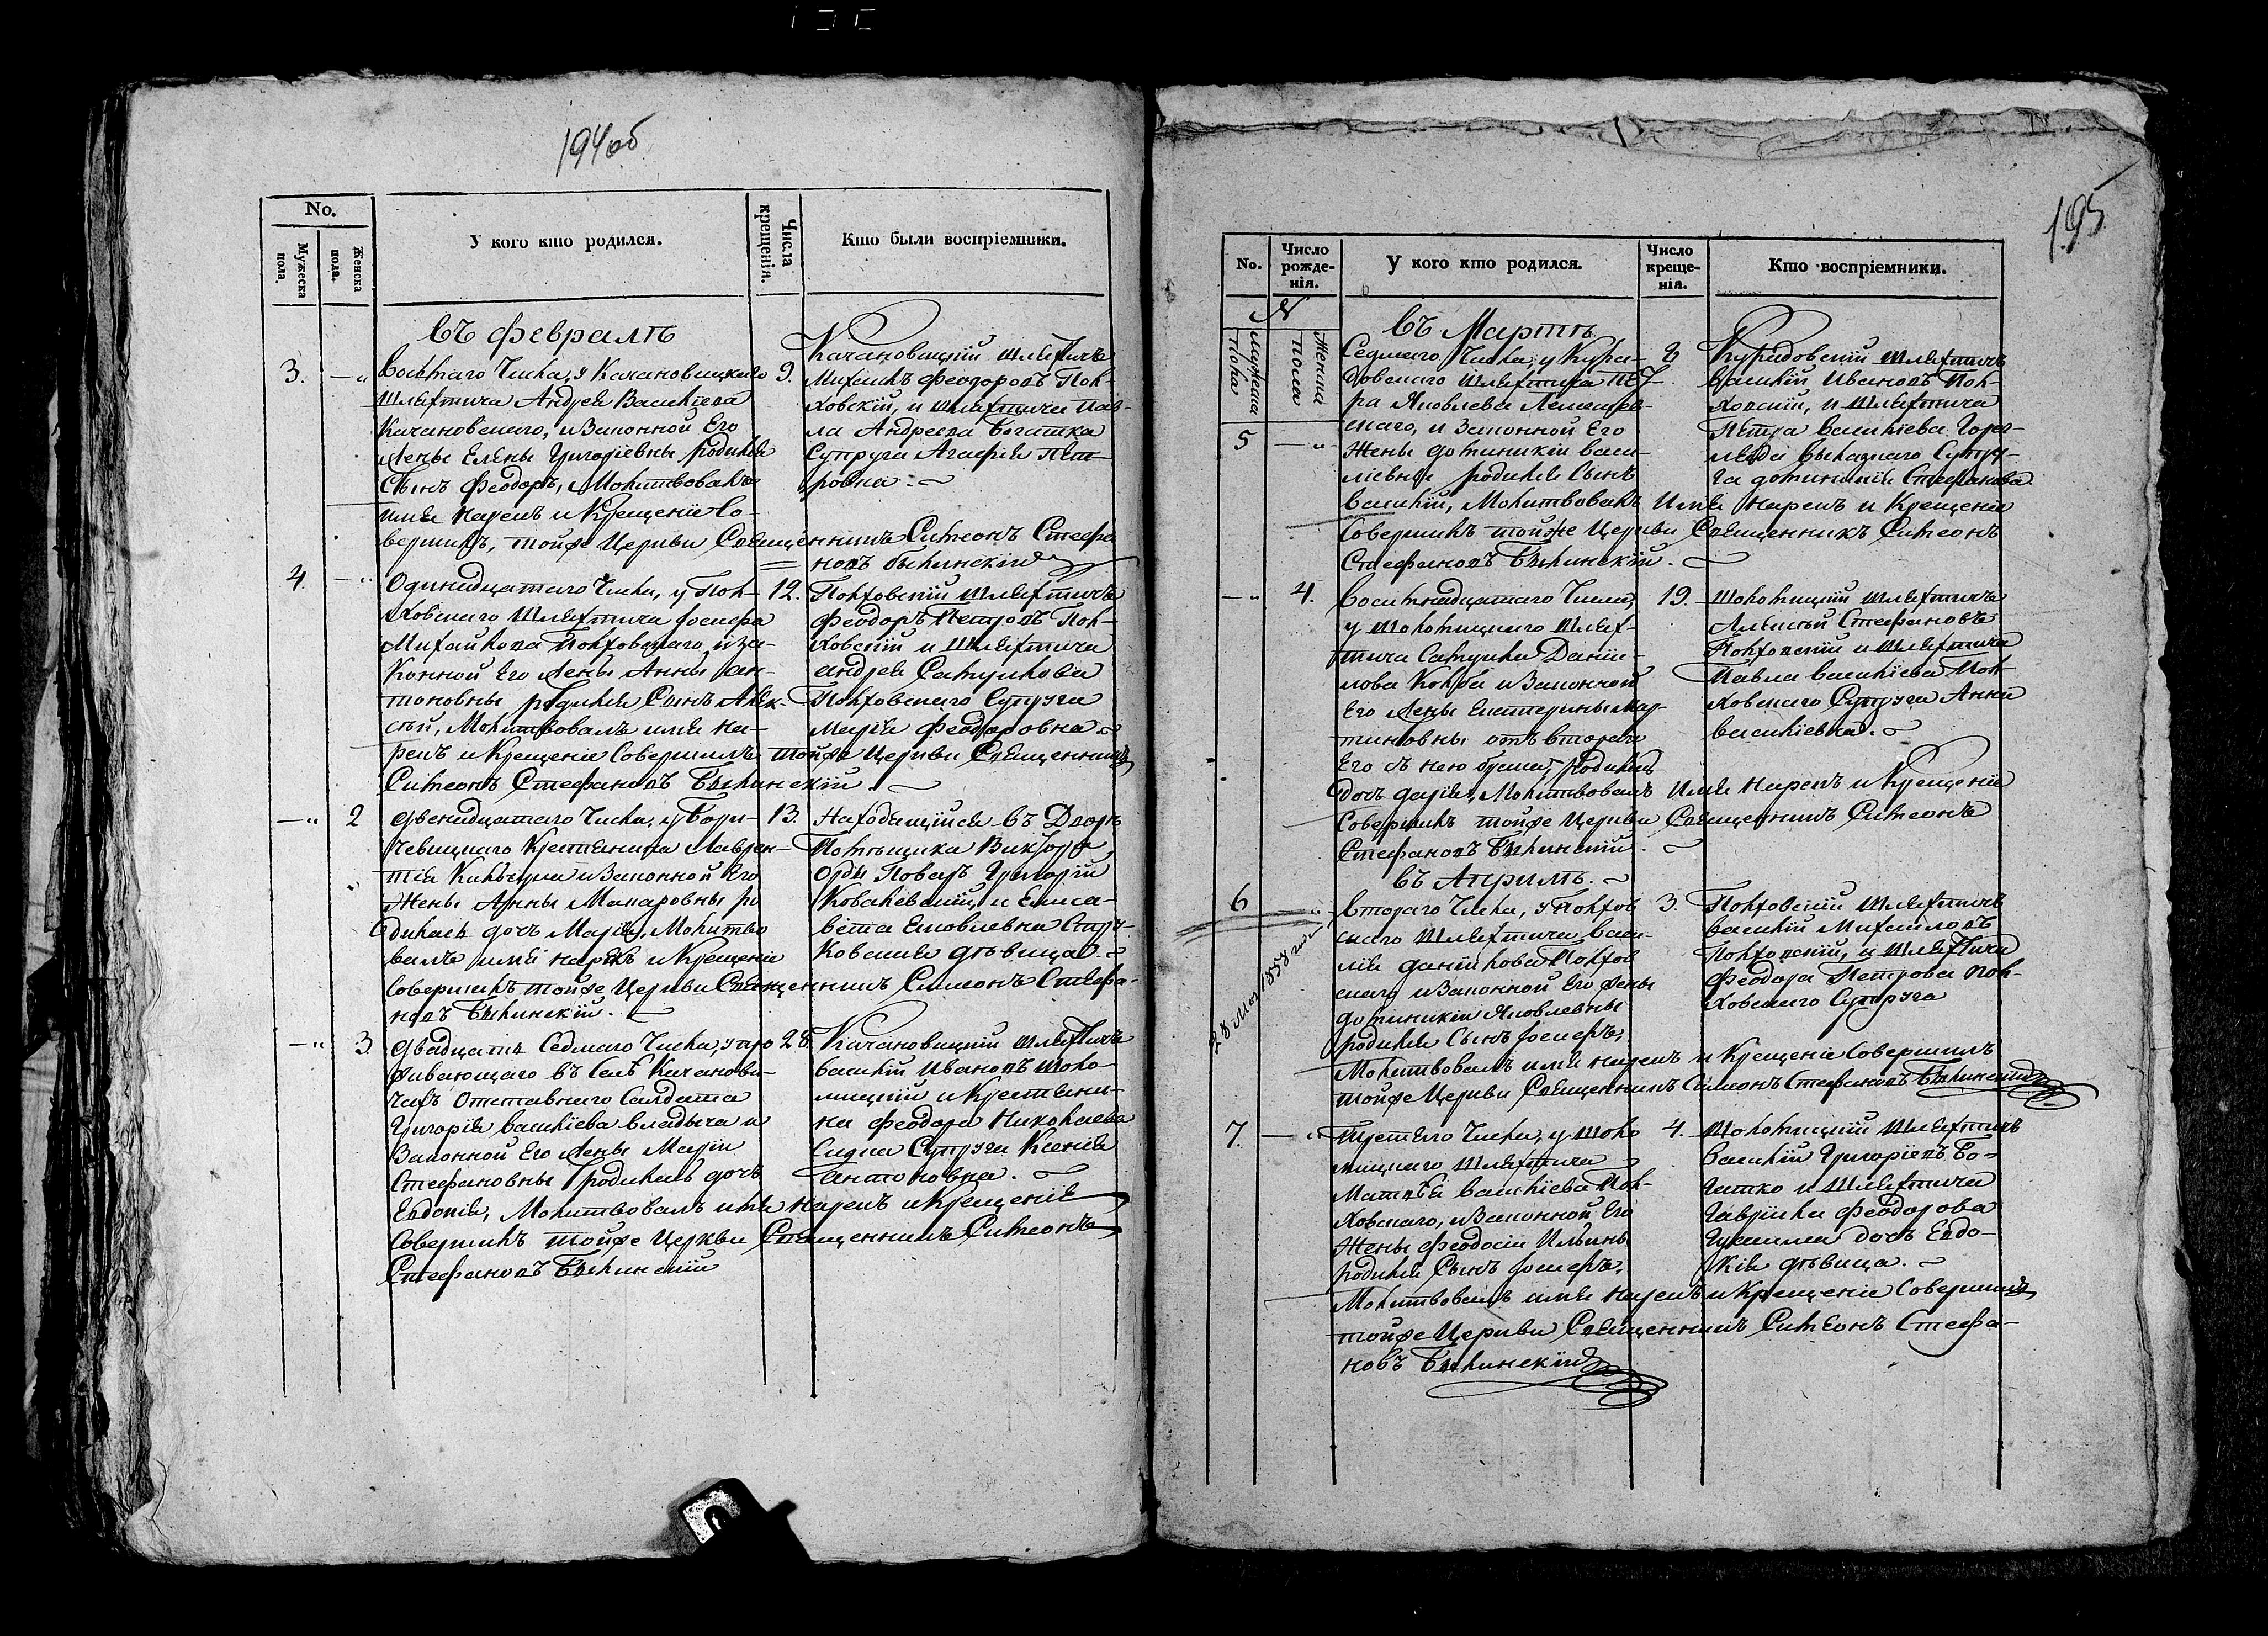 194об
No.
Мужеска пола.
Женска пола.
У кого кто родился.
Числа крещенія.
Кто были воспріемники.
Въ Февралѣ
3. —„ Восмаго Числа, у Качановицкаго 9.
Шляхтича Андрея Василіева
Качановскаго, и Законной Его
Жены Елены Григоріевны, родился
Сынъ Феодоръ, Молитвовалъ
имя нарекъ и Крещеніе Со-
вершилъ, тойже Церкви Священникъ Симеонъ Стефа
новъ Былинскій
Качановицкій шляхтичъ
Михаилъ Феодоровъ Пол-
ховскій, и шляхтича Пав-
ла Андреева Богатка
Супруга Агафія Пет-
ровна.
4. —„ Одинадцатаго Числа, у Пол- 12.
ховскаго Шляхтича Іосифа
Михайлова Полховскаго, и за-
конной Его Жены Анны Ан-
тоновны родился Сынъ Алек-
сѣй, Молитвовалъ имя на-
рекъ и Крещеніе Совершилъ тойже Церкви Священникъ
Симеонъ Стефановъ Былинскій
Полховскій Шляхтичъ
Феодоръ Петровъ Пол-
ховскій и Шляхтича
Андрея Самуилова
Полховскаго Супруга
Марія Феодоровна
—„ 2 Двенадцатаго Числа, у Бори- 13.
чевицкаго Крестянина Лаврен-
тія и Законной Его
Жены Анны Макаровны ро
дилась дочь Марія, Молитво
валъ имя нарекъ и Крещеніе
Совершилъ тойже Церкви Священникъ Симеонъ Стефа-
новъ Былинскій.
Находящійся въ Дворѣ
Помѣщика Виктора
Орды Поваръ Григорій
Ковалевскій, и Елиса-
вета Яковлевна
девица.
—„ 3. Двадцать Седмаго Числа, у про 28.
живающаго въ Селѣ Качанови-
чахъ Отставнаго Салдата
Григорія Василіева Владыча и
Законной Его Жены Маріи
Стефановны родилась дочь
Евдокія, Молитвовалъ имя нарекъ и Крещеніе
Совершилъ тойже Церкви Священникъ Симеонъ
Стефановъ Былинскій
Качановицкій шляхтичъ
Василій Ивановъ Шоло-
мицкій и Крестяни-
на Феодора Николаева
Супруга Ксенія
Антоновна.
195
No.
Число рожде-нія.
У кого кто родился.
Число креще-нія.
Кто воспріемники.
№
Мужеска Пола
Женска пола
Въ Мартѣ
5 —„ Седмаго Числа, у Кура- 8
довскаго Шляхтича Пет-
ра Яковлева
скаго, и Законной Его
Жены Доминикіи Васи-
ліевны родился Сынъ
Василій, Молитвовалъ Имя Нарекъ и Крещеніе
Совершилъ тойже Церкви Священникъ Симеонъ
Стефановъ Былинскій.
Курадовскій шляхтичъ
Василій Ивановъ Пол-
ховскій, и Шляхтича
Петра Василіева
Супру-
га Доминикія Стефанова
—„ 4. Восемнадцатаго Числа, 19.
у Шоломицкаго Шлях-
тича Самуила Дании-
лова Колба и Законной
Его Жены Екатерины Мар-
тиновны отъ втораго
Его съ нею брака, родилась
дочь Дарія, Молитвовалъ Имя Нарекъ и Крещеніе
Совершилъ тойже Церкви Священникъ Симеонъ
Стефановъ Былинскій.
Шоломицкій шляхтичъ
Алексѣй Стефановъ
Полховскій и шляхтича
Павла Василіева Пол-
ховскаго Супруга Анна
Василіевна.
въ Априлѣ.
6 „ Втораго Числа, у Полхов 3.
скаго Шляхтича Васи-
лія Даніилова Полхов
скаго и Законной Его Жены
Доминикіи Яковлевны
родился Сынъ Іосифъ,
Молитвовалъ имя нарекъ и Крещеніе Совершилъ
тойже Церкви Священникъ Симеонъ Стефановъ Былинскій
Полховскій Шляхтичъ
Василій Михаиловъ
Полховскій, и Шляхтича
Феодора Петрова Пол-
ховскаго Супруга
28 1858 года
7. —„ Третяго Числа, у Шоло 4.
мицкаго Шляхтича
Матвѣя Василіева Пол-
ховскаго, и Законной Его
Жены Феодосіи Ильины
родился Сынъ Іосифъ,
Молитвовалъ имя нарекъ и Крещеніе Совершилъ
тойже Церкви Священникъ Симеонъ Стефа-
новъ Былинскій
Шоломицкій Шляхтичъ
Василій Григоріевъ Бо-
гатко и Шляхтича
Гавріила Феодорова
дочь Евдо-
кія девица.